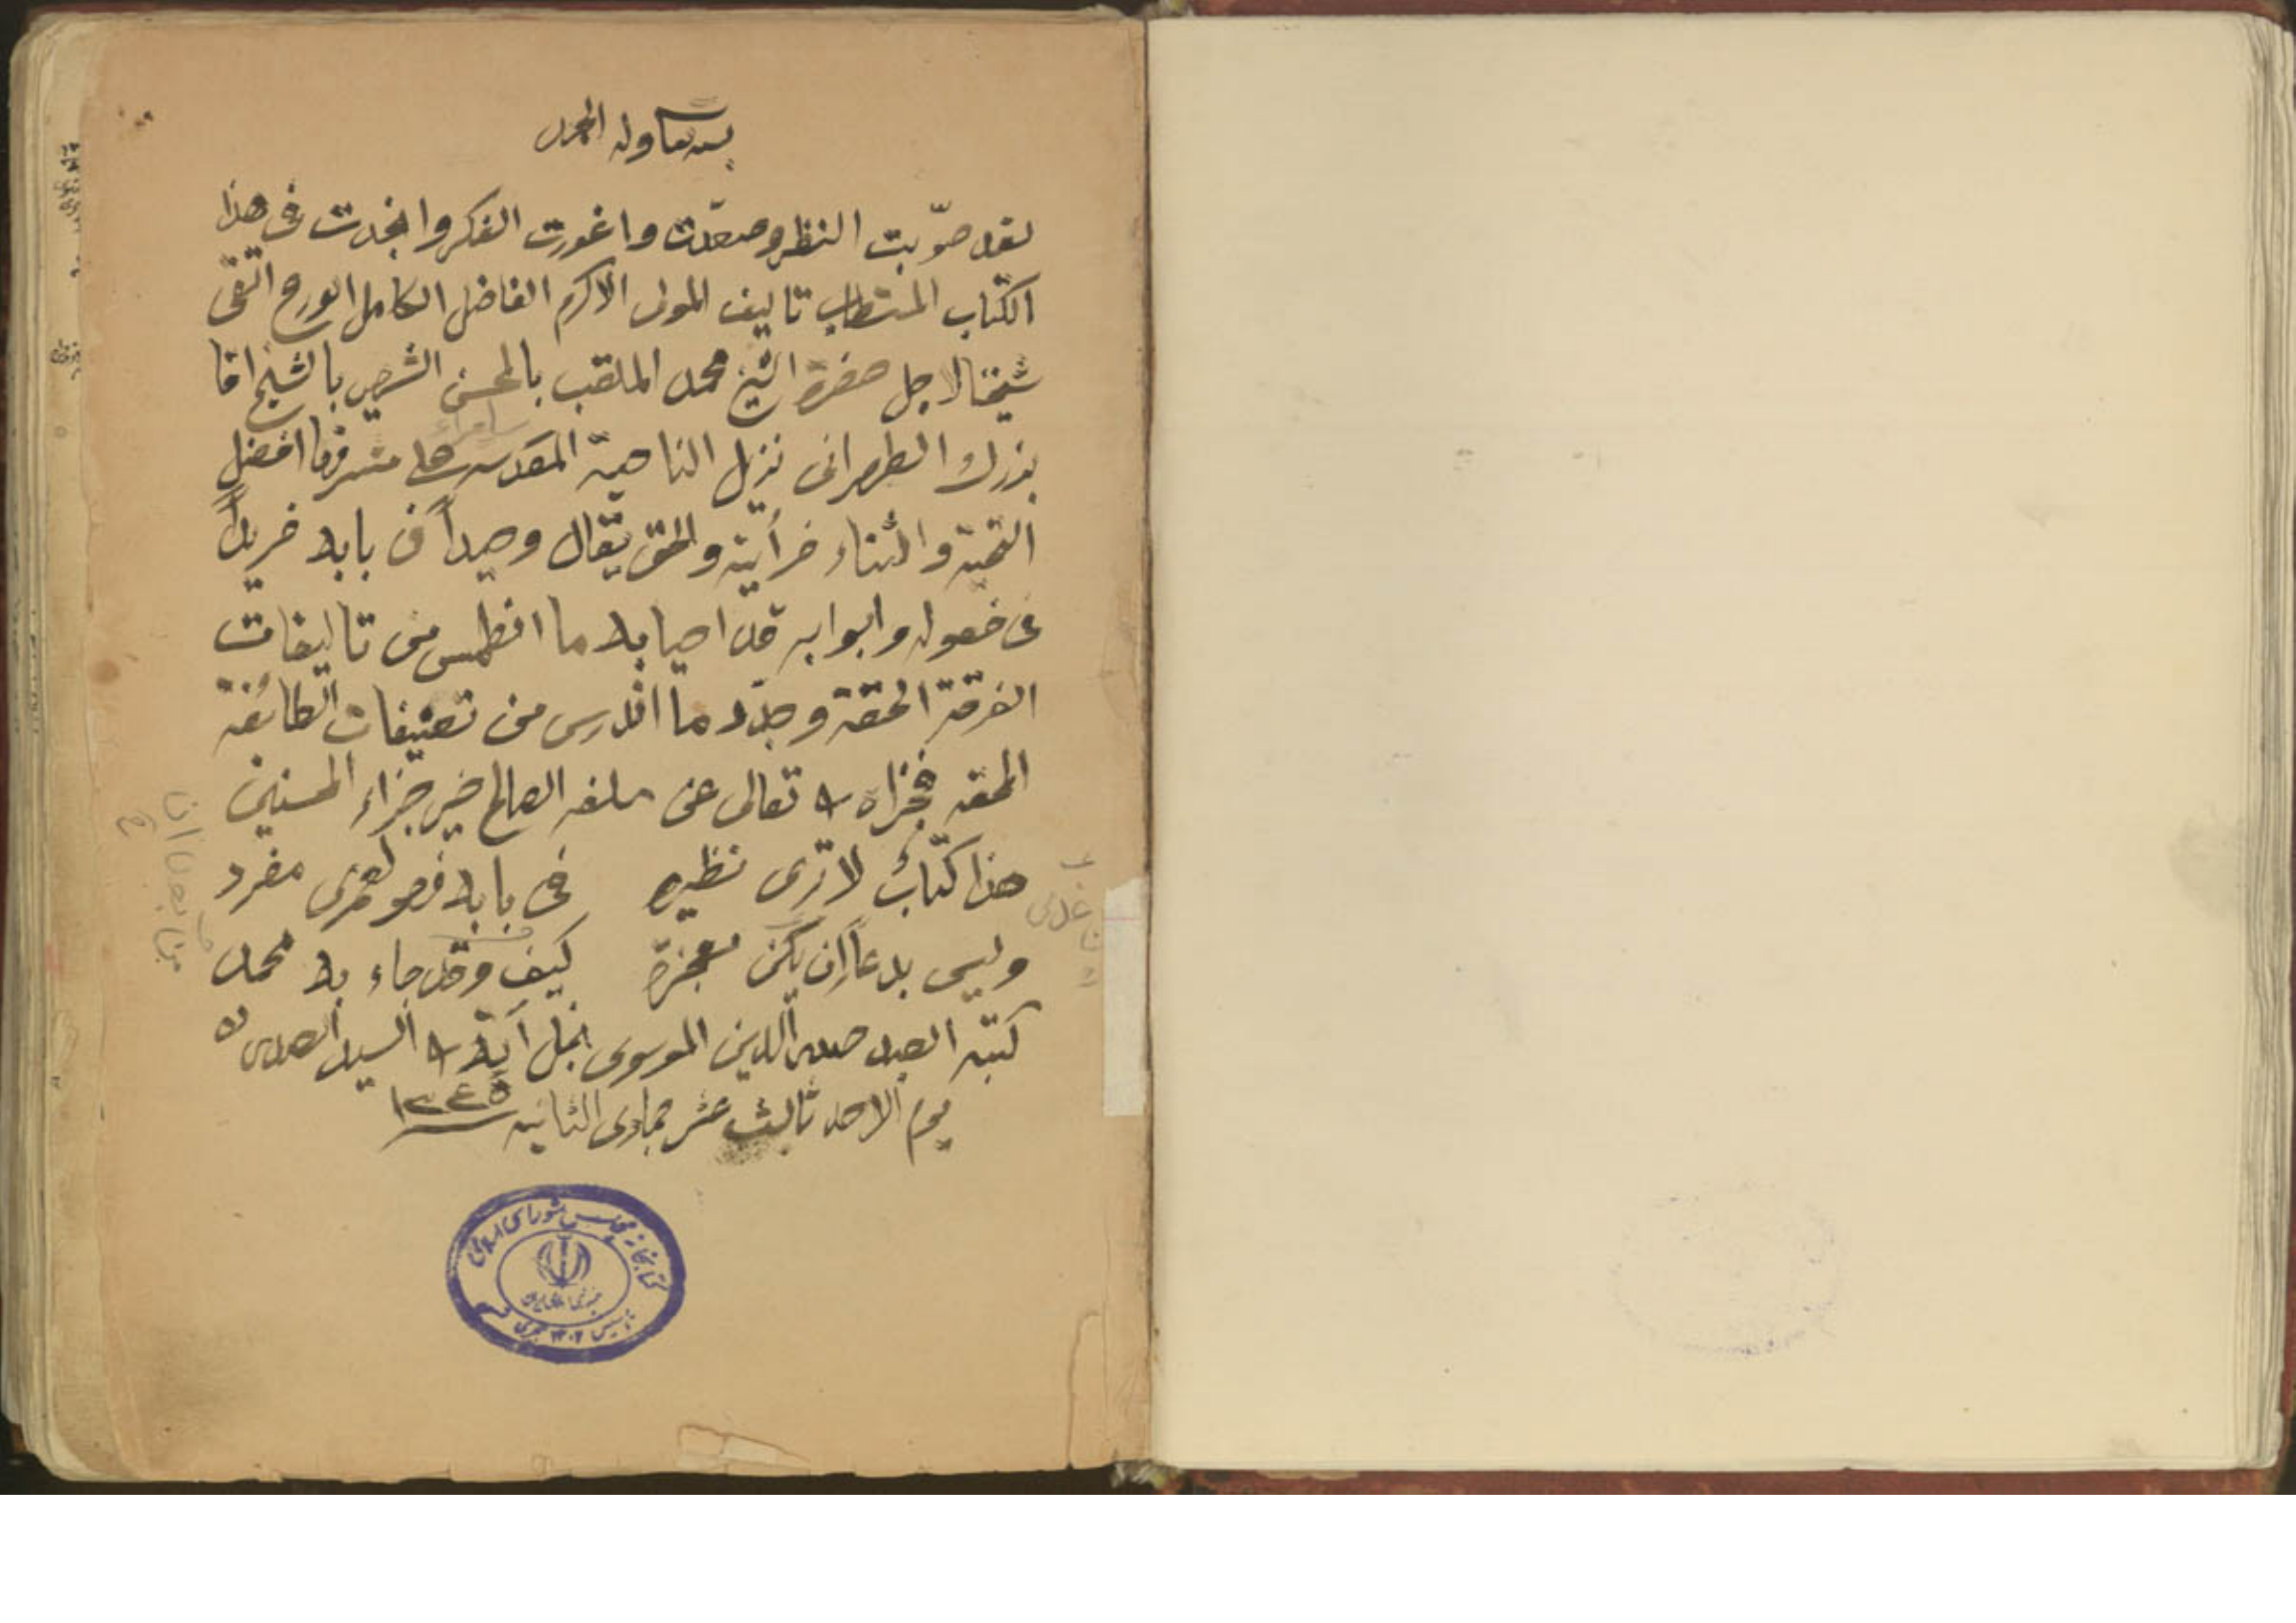 بسمه تعالى وله الحمد
لقد صوّبت النظر وصعّدت واغورت الفكر وانجدت فى هذا
الكتاب المستطاب تاليف المولى الاكرم الفاضل الكامل الورع التقى
شيخنا الاجل حضرة الشيخ محمد الملقب بالمحسن الشهير بالشيخ اقا
بزرك الطهرانى نزيل الناحية المقدسة على مشرفها افضل
سامراء
التحية والثناء فرأيته والحق يقال وحيداً فى بابه فريداً
فى فصوله وابوابه قد احيا به ما انطمس من تاليفات
الفرقة المحقة وجدّد ما اندرس من تصنيفات الطائفة
الحقه فجزاه الله تعالى عن سلفه الصالح خير جزاء المحسنين
هذا كتابٌ لا ترى نظيره فى بابه فهو لعمرى مفرد
وليس بدعاً ان يكن معجزة كيف وقد جاء به محمد
كتبه العبد صدر الدين الموسوى نجل آية الله السيد الصدر
يوم الاحد ثالث عشر جمادى الثانيه سنة ١٣٤٥
كتابخانه مجلس شوراى اسلامى
تاسيس ١٣٠٢